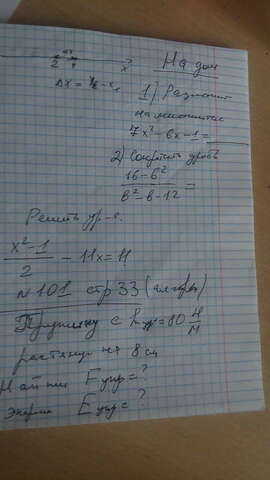 2
x
Δx = x₂ - x₁
На дом
1) Разложит
на множители
7x² - 6x - 1 =
2) Сократить дробь
16 - в²
в² - в - 12
=
Решить ур-е.
x² - 1
2
- 11x = 11
№ 101 стр 33 (алгебра)
Пружину с kупр = 80 Н/м
растянули на 8 см
Найти Fупр = ?
Энергия Eупр = ?